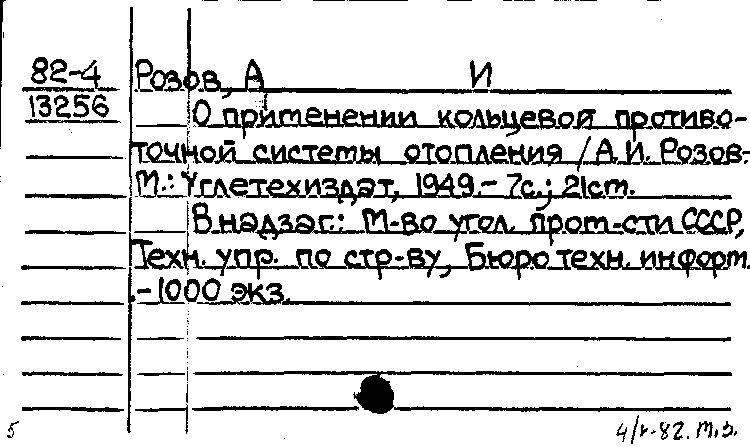 82-4 Розов, А И
13256 О применении кольцевой противо-
точной системы отопления / А.И. Розов.-
М.: Углетехиздат, 1949.- 7с.; 21см.
В надзаг.: М-во угол. пром-сти СССР,
Техн. упр. по стр-ву, Бюро техн. информ.
.-1000 экз.
5